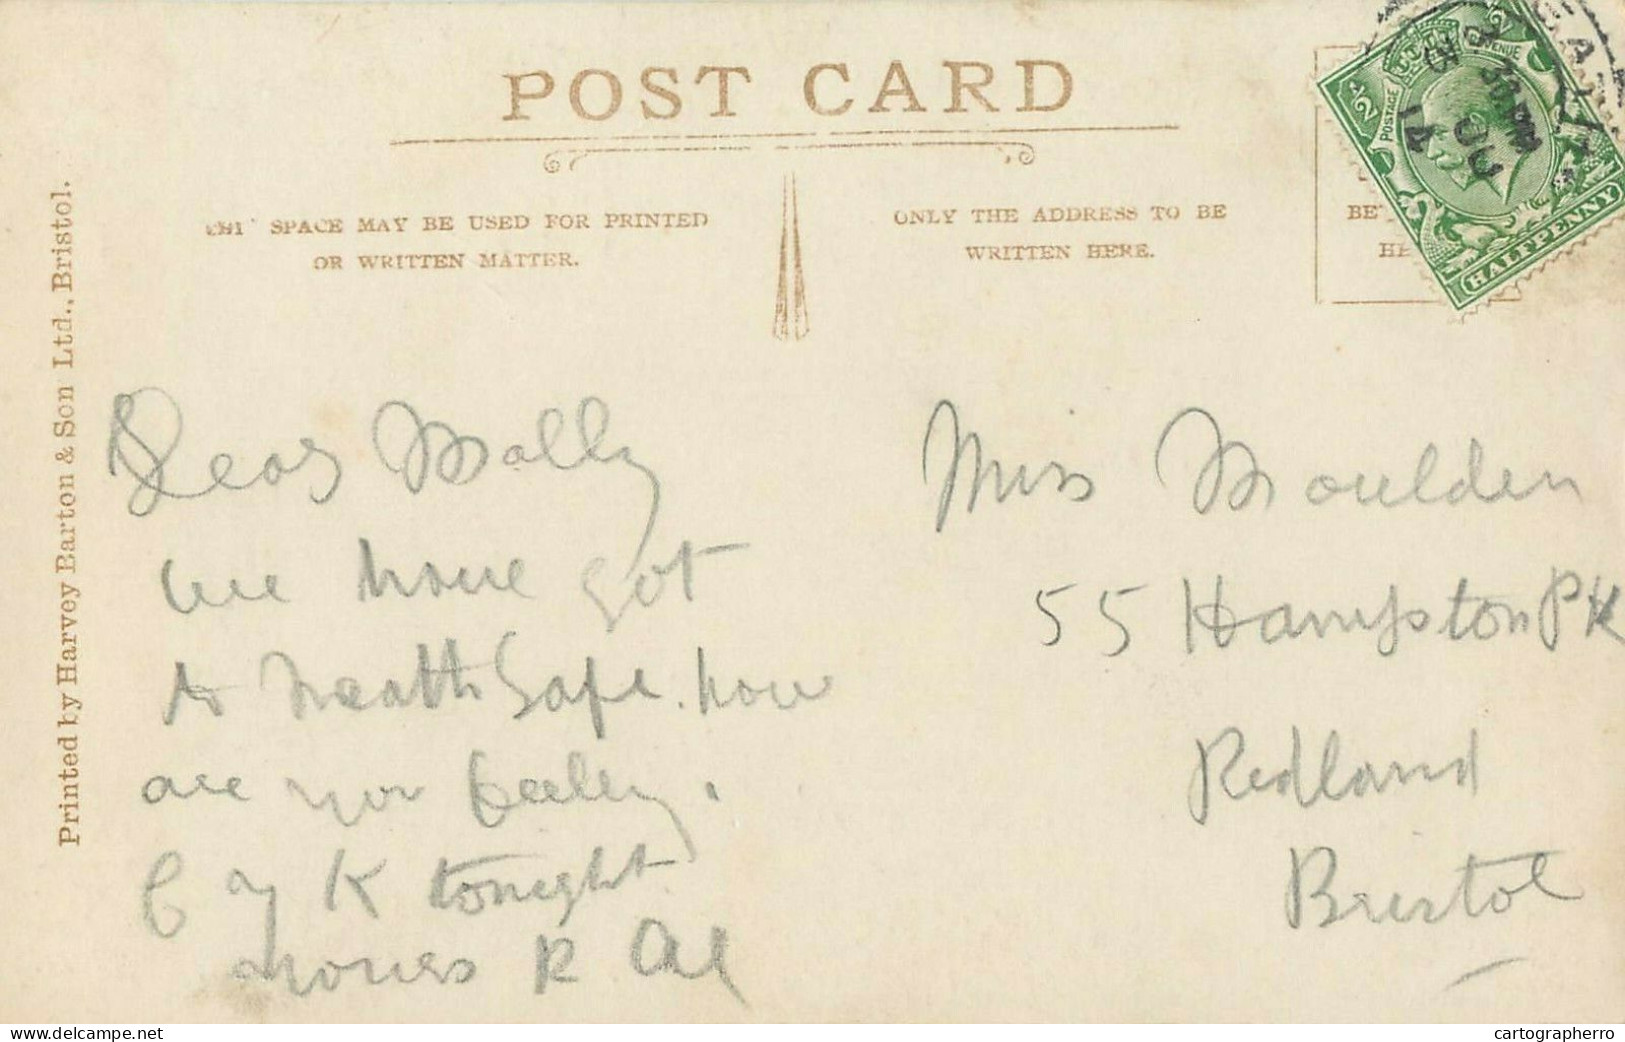 POST CARD
SPACE MAY BE USED FOR PRINTED
OR WRITTEN MATTER.
ONLY THE ADDRESS TO BE
WRITTEN HERE.
BE
HE
Printed by Harvey Barton & Son Ltd., Bristol.
½
POSTAGE
HALFPENNY
14
Dear Molly
we have got
to Neath Safe. how
are you feeling.
tonight
yours R
Miss Moulden
55 Hampston Pk
Redland
Bristol
www.delcampe.net
cartographerro